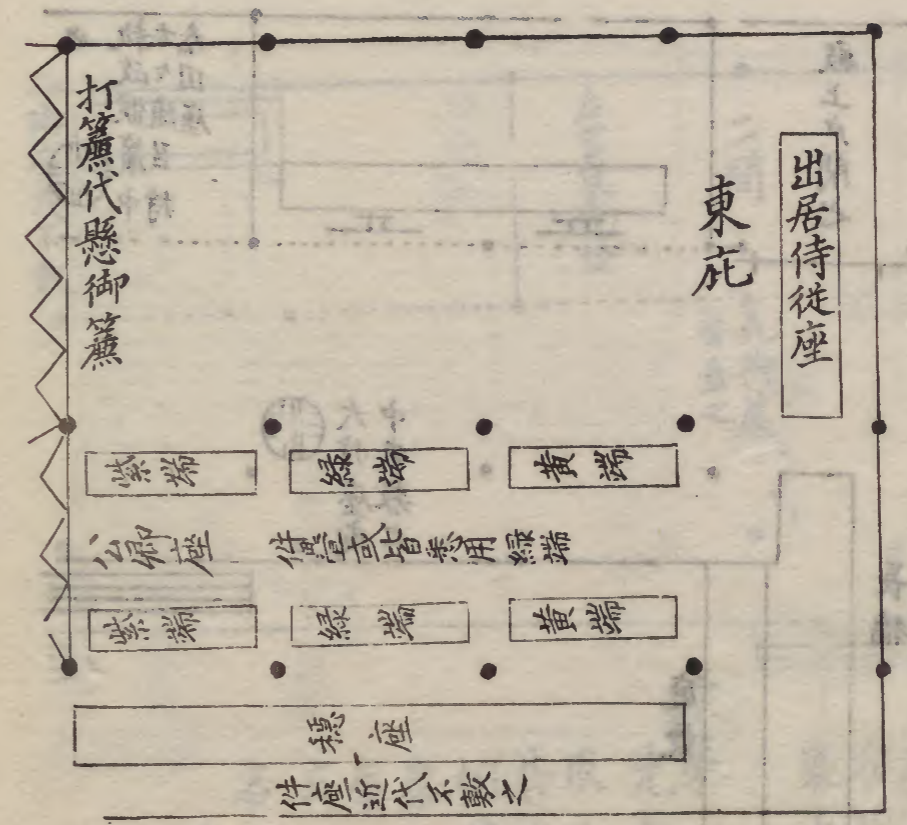 出居侍従座
東庇
打簾代懸御簾
紫端
緑端
黄端
公卿座
件畳或皆悉用緑端
紫端
緑端
黄端
穏座
件座近代不敷之